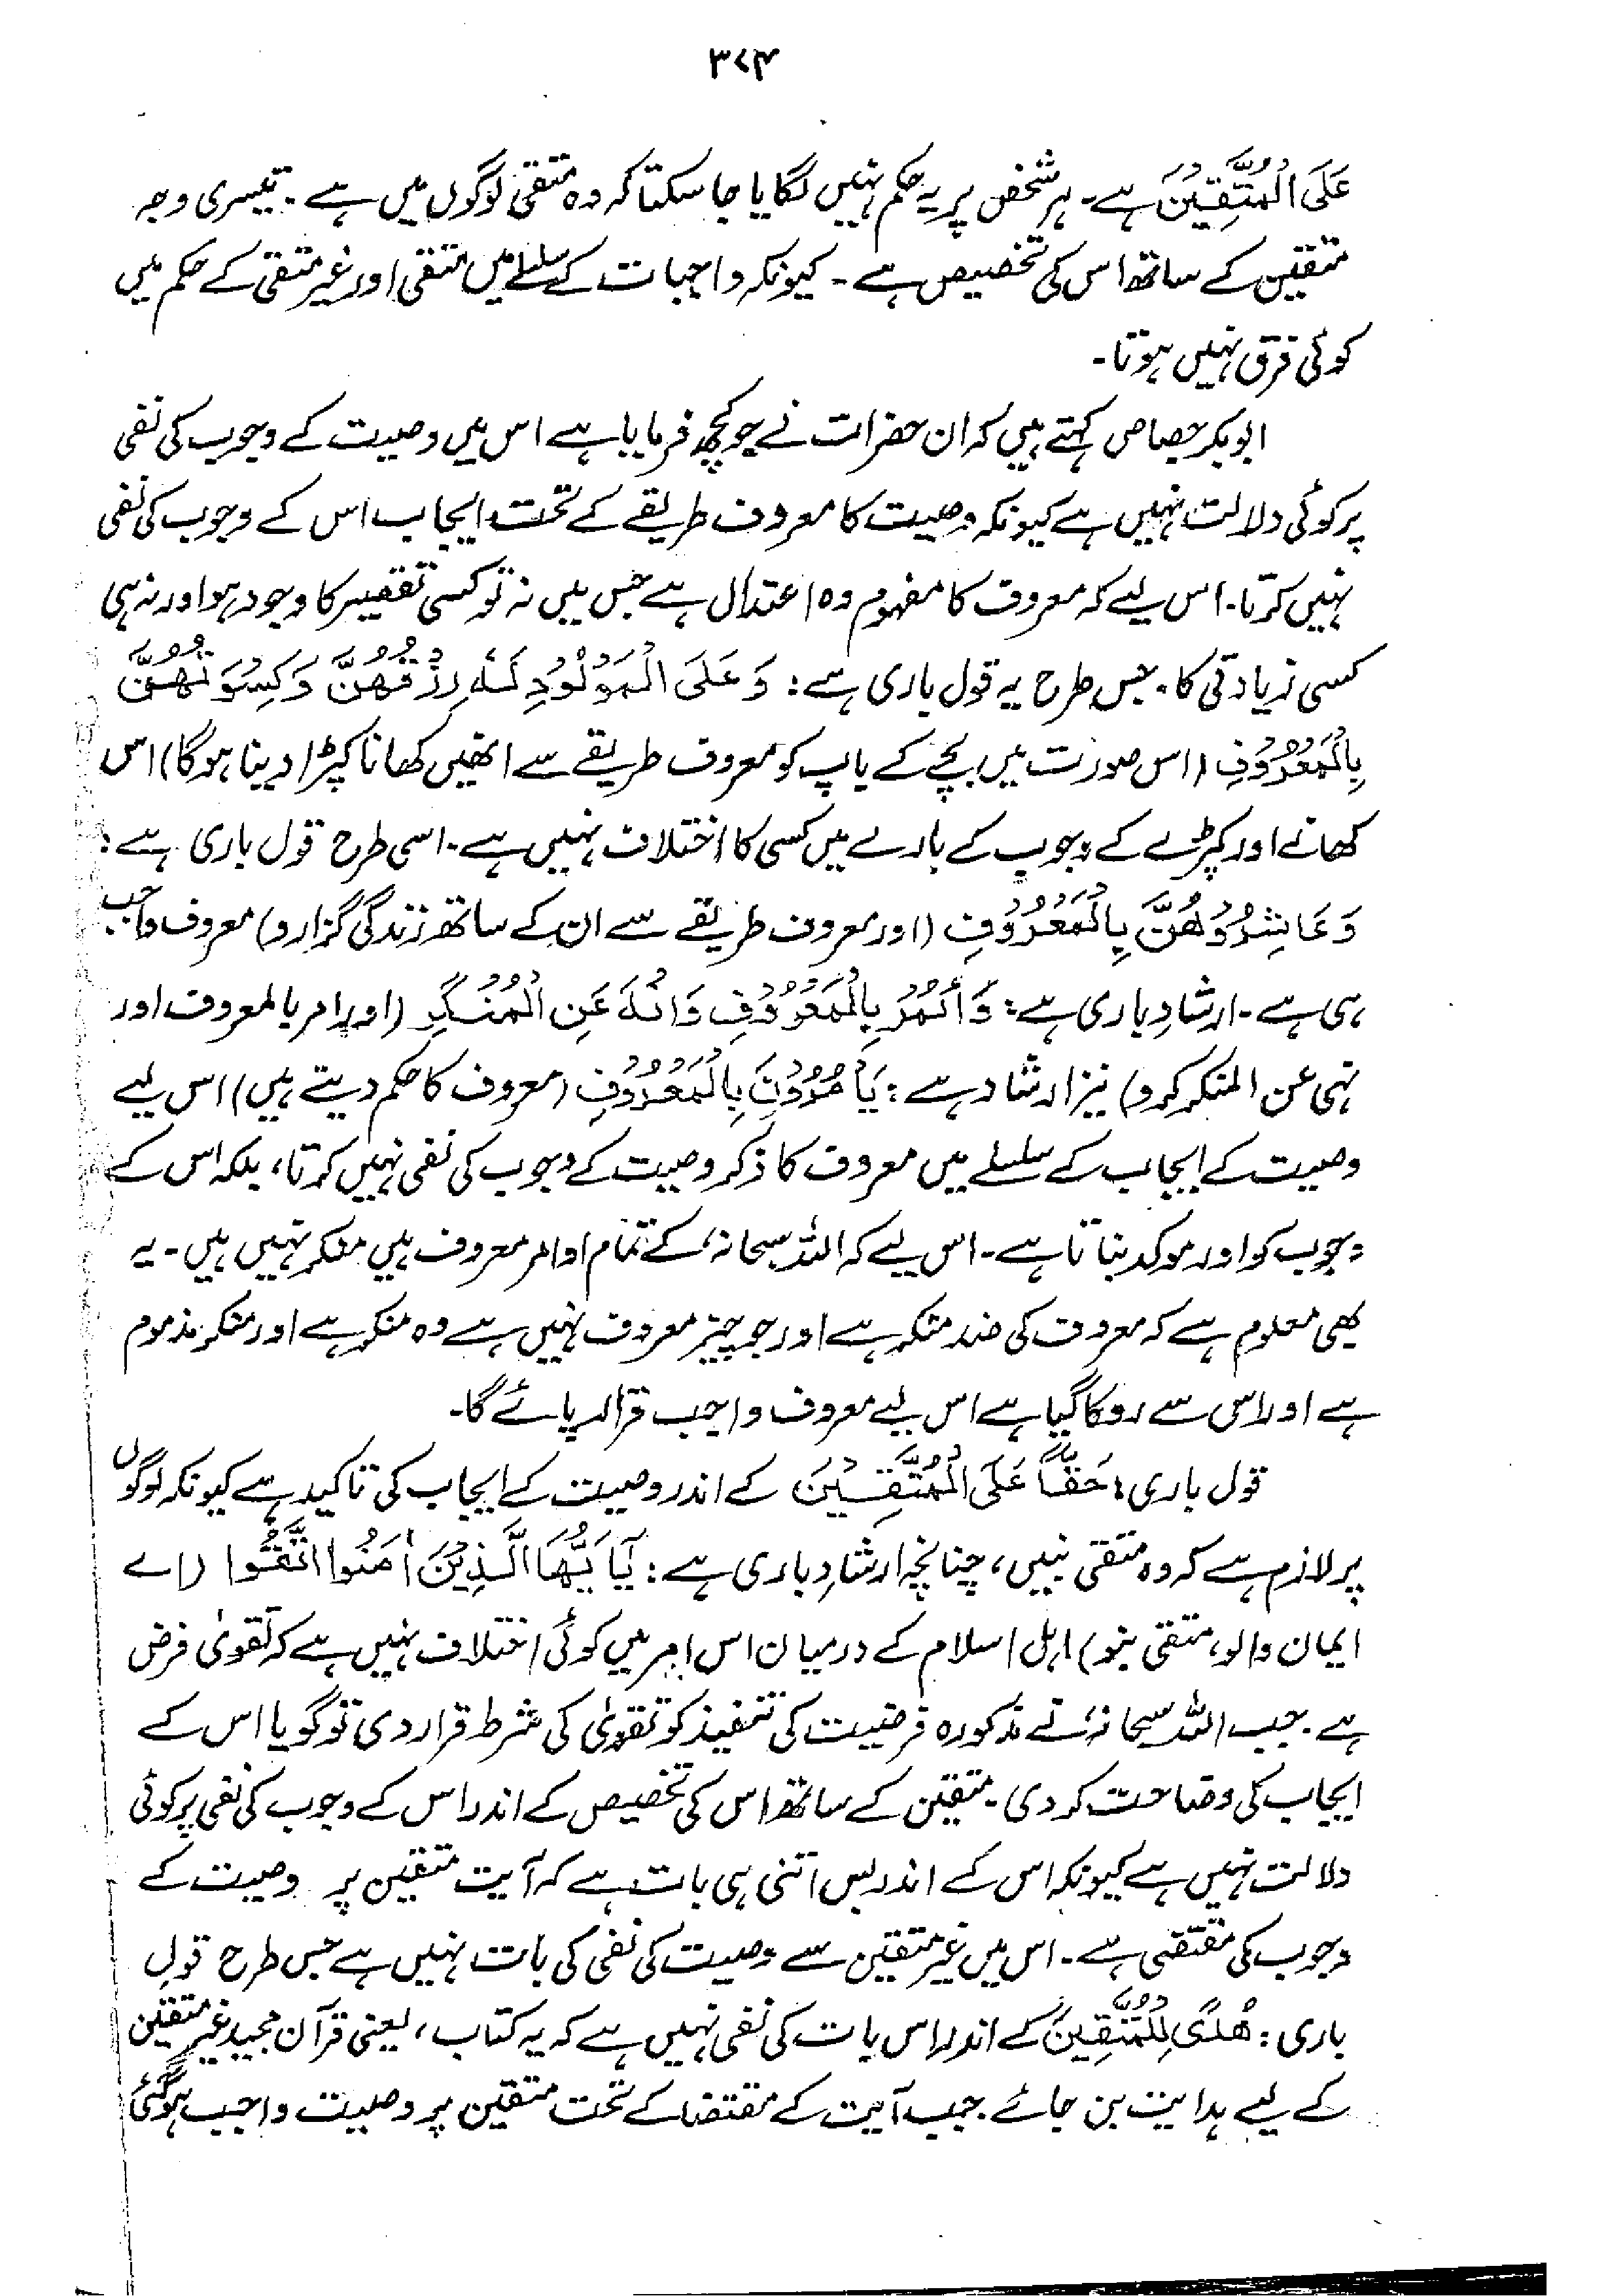 ۳۷۴
عَلَى الْمُتَّقِيْنَ ہے۔ ہر شخص پر یہ حکم نہیں لگایا جا سکتا کہ وہ متقی لوگوں میں ہے۔ تیسری وجہ
متقین کے ساتھ اس کی تخصیص ہے۔ کیونکہ واجبات کے سلسلے میں متقی اور غیر متقی کے حکم میں
کوئی فرق نہیں ہوتا۔
ابوبکر جصاص کہتے ہیں کہ ان حضرات نے جو کچھ فرمایا ہے اس میں وصیت کے وجوب کی نفی
پر کوئی دلالت نہیں ہے کیونکہ وصیت کا معروف طریقے کے تحت ایجاب اس کے وجوب کی نفی
نہیں کرتا۔ اس لیے کہ معروف کا مفہوم وہ اعتدال ہے جس میں نہ تو کسی تقصیر کا وجود ہو اور نہ ہی
کسی زیادتی کا۔ جس طرح یہ قول باری ہے: وَعَلَى الْمَوْلُوْدِ لَهٗ رِزْقُهُنَّ وَكِسْوَتُهُنَّ
بِالْمَعْرُوْفِ (اس صورت میں بچے کے باپ کو معروف طریقے سے انھیں کھانا کپڑا دینا ہوگا) اس
کھانے اور کپڑے کے وجوب کے بارے میں کسی کا اختلاف نہیں ہے۔ اسی طرح قول باری ہے:
وَعَاشِرُوْهُنَّ بِالْمَعْرُوْفِ (اور معروف طریقے سے ان کے ساتھ زندگی گزارو) معروف واجب
ہی ہے۔ ارشادِ باری ہے: وَأْمُرْ بِالْمَعْرُوْفِ وَانْهَ عَنِ الْمُنْكَرِ (اور امر بالمعروف اور
نہی عن المنکر کرو) نیز ارشاد ہے: يَأْمُرُوْنَ بِالْمَعْرُوْفِ (معروف کا حکم دیتے ہیں) اس لیے
وصیت کے ایجاب کے سلسلے میں معروف کا ذکر وصیت کے وجوب کی نفی نہیں کرتا، بلکہ اس کے
وجوب کو اور موکد بناتا ہے۔ اس لیے کہ اللہ سبحانہٗ کے تمام اوامر معروف ہیں منکر نہیں ہیں۔ یہ
بھی معلوم ہے کہ معروف کی ضد منکر ہے اور جو چیز معروف نہیں ہے وہ منکر ہے اور منکر مذموم
ہے اور اس سے روکا گیا ہے اس لیے معروف واجب قرار پائے گا۔
قول باری: حَقًّا عَلَى الْمُتَّقِيْنَ کے اندر وصیت کے ایجاب کی تاکید ہے کیونکہ لوگوں
پر لازم ہے کہ وہ متقی بنیں، چنانچہ ارشادِ باری ہے: يَآ اَيُّهَا الَّذِيْنَ اٰمَنُوا اتَّقُوا (اے
ایمان والو، متقی بنو) اہل اسلام کے درمیان اس امر میں کوئی اختلاف نہیں ہے کہ تقویٰ فرض
ہے۔ جب اللہ سبحانہٗ نے مذکورہ فرضیت کی تنفیذ کو تقویٰ کی شرط قرار دی تو گویا اس کے
ایجاب کی وضاحت کر دی۔ متقین کے ساتھ اس کی تخصیص کے اندر اس کے وجوب کی نفی پر کوئی
دلالت نہیں ہے کیونکہ اس کے اندر بس اتنی ہی بات ہے کہ آیت متقین پر وصیت کے
وجوب کی مقتضی ہے۔ اس میں غیر متقین سے وصیت کی نفی کی بات نہیں ہے جس طرح قولِ
باری: هُدًى لِّلْمُتَّقِيْنَ کے اندر اس بات کی نفی نہیں ہے کہ یہ کتاب، یعنی قرآن مجید غیر متقین
کے لیے ہدایت بن جائے۔ جب آیت کے مقتضا کے تحت متقین پر وصیت واجب ہو گئی